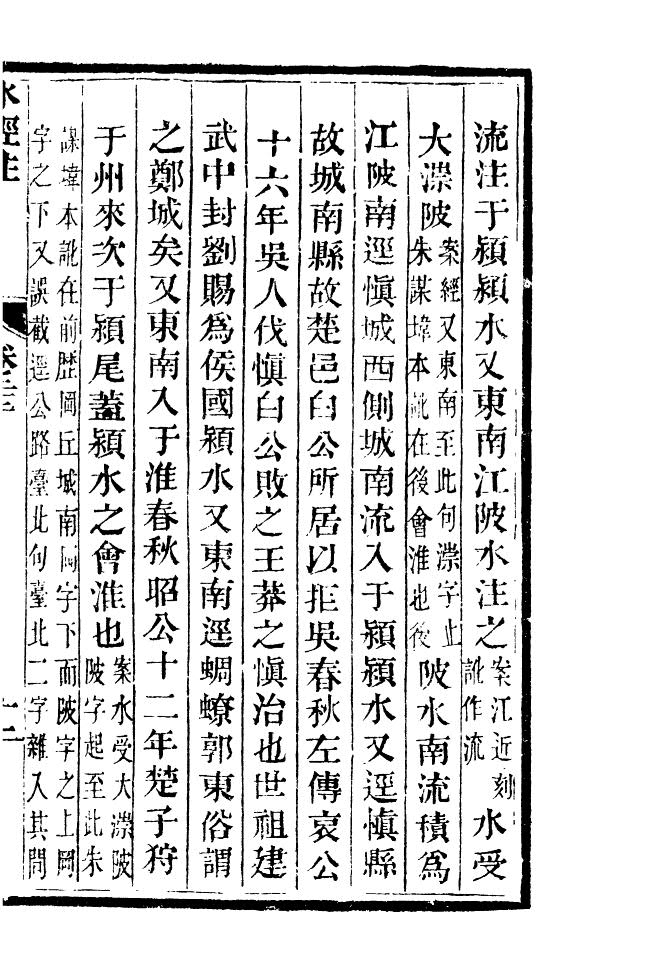 流注于潁潁水又東南江陂水注之案江近刻訛作流水受
大漴陂案經又東南至此句漴字止朱謀㙔本訛在後會淮也後陂水南流積爲
江陂南逕慎城西側城南流入于潁潁水又逕慎縣
故城南縣故楚邑白公所居以拒吳春秋左傳哀公
十六年吳人伐慎白公敗之王莽之慎治也世祖建
武中封劉賜爲侯國潁水又東南逕蜩蟟郭東俗謂
之鄭城矣又東南入于淮春秋昭公十二年楚子狩
于州來次于潁尾蓋潁水之會淮也案水受大漴陂陂字起至此朱
謀㙔本訛在前歴岡丘城南岡字下而陂字之上岡
字之下又誤截逕公路臺此句臺北二字雜入其間
水經注 卷二十二 十二